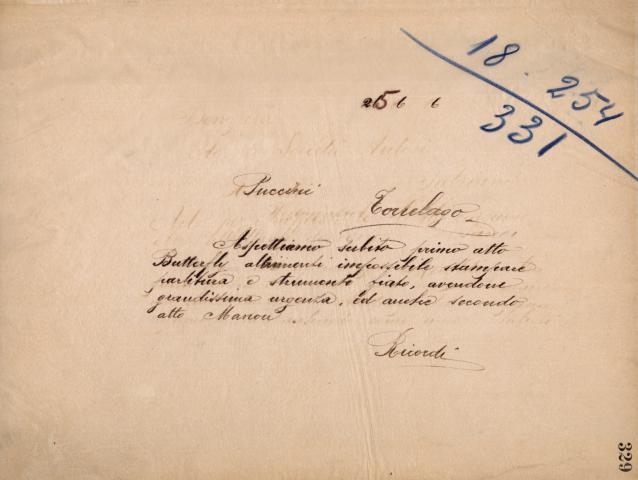 18 . 254
331
25 6 6
Puccini
Torrelago
Aspettiamo subito primo atto
Butterfly altrimenti impossibile stampare
partitura e strumento fiato, avendone
grandissima urgenza, ed anche secondo
atto Manon
Ricordi
329